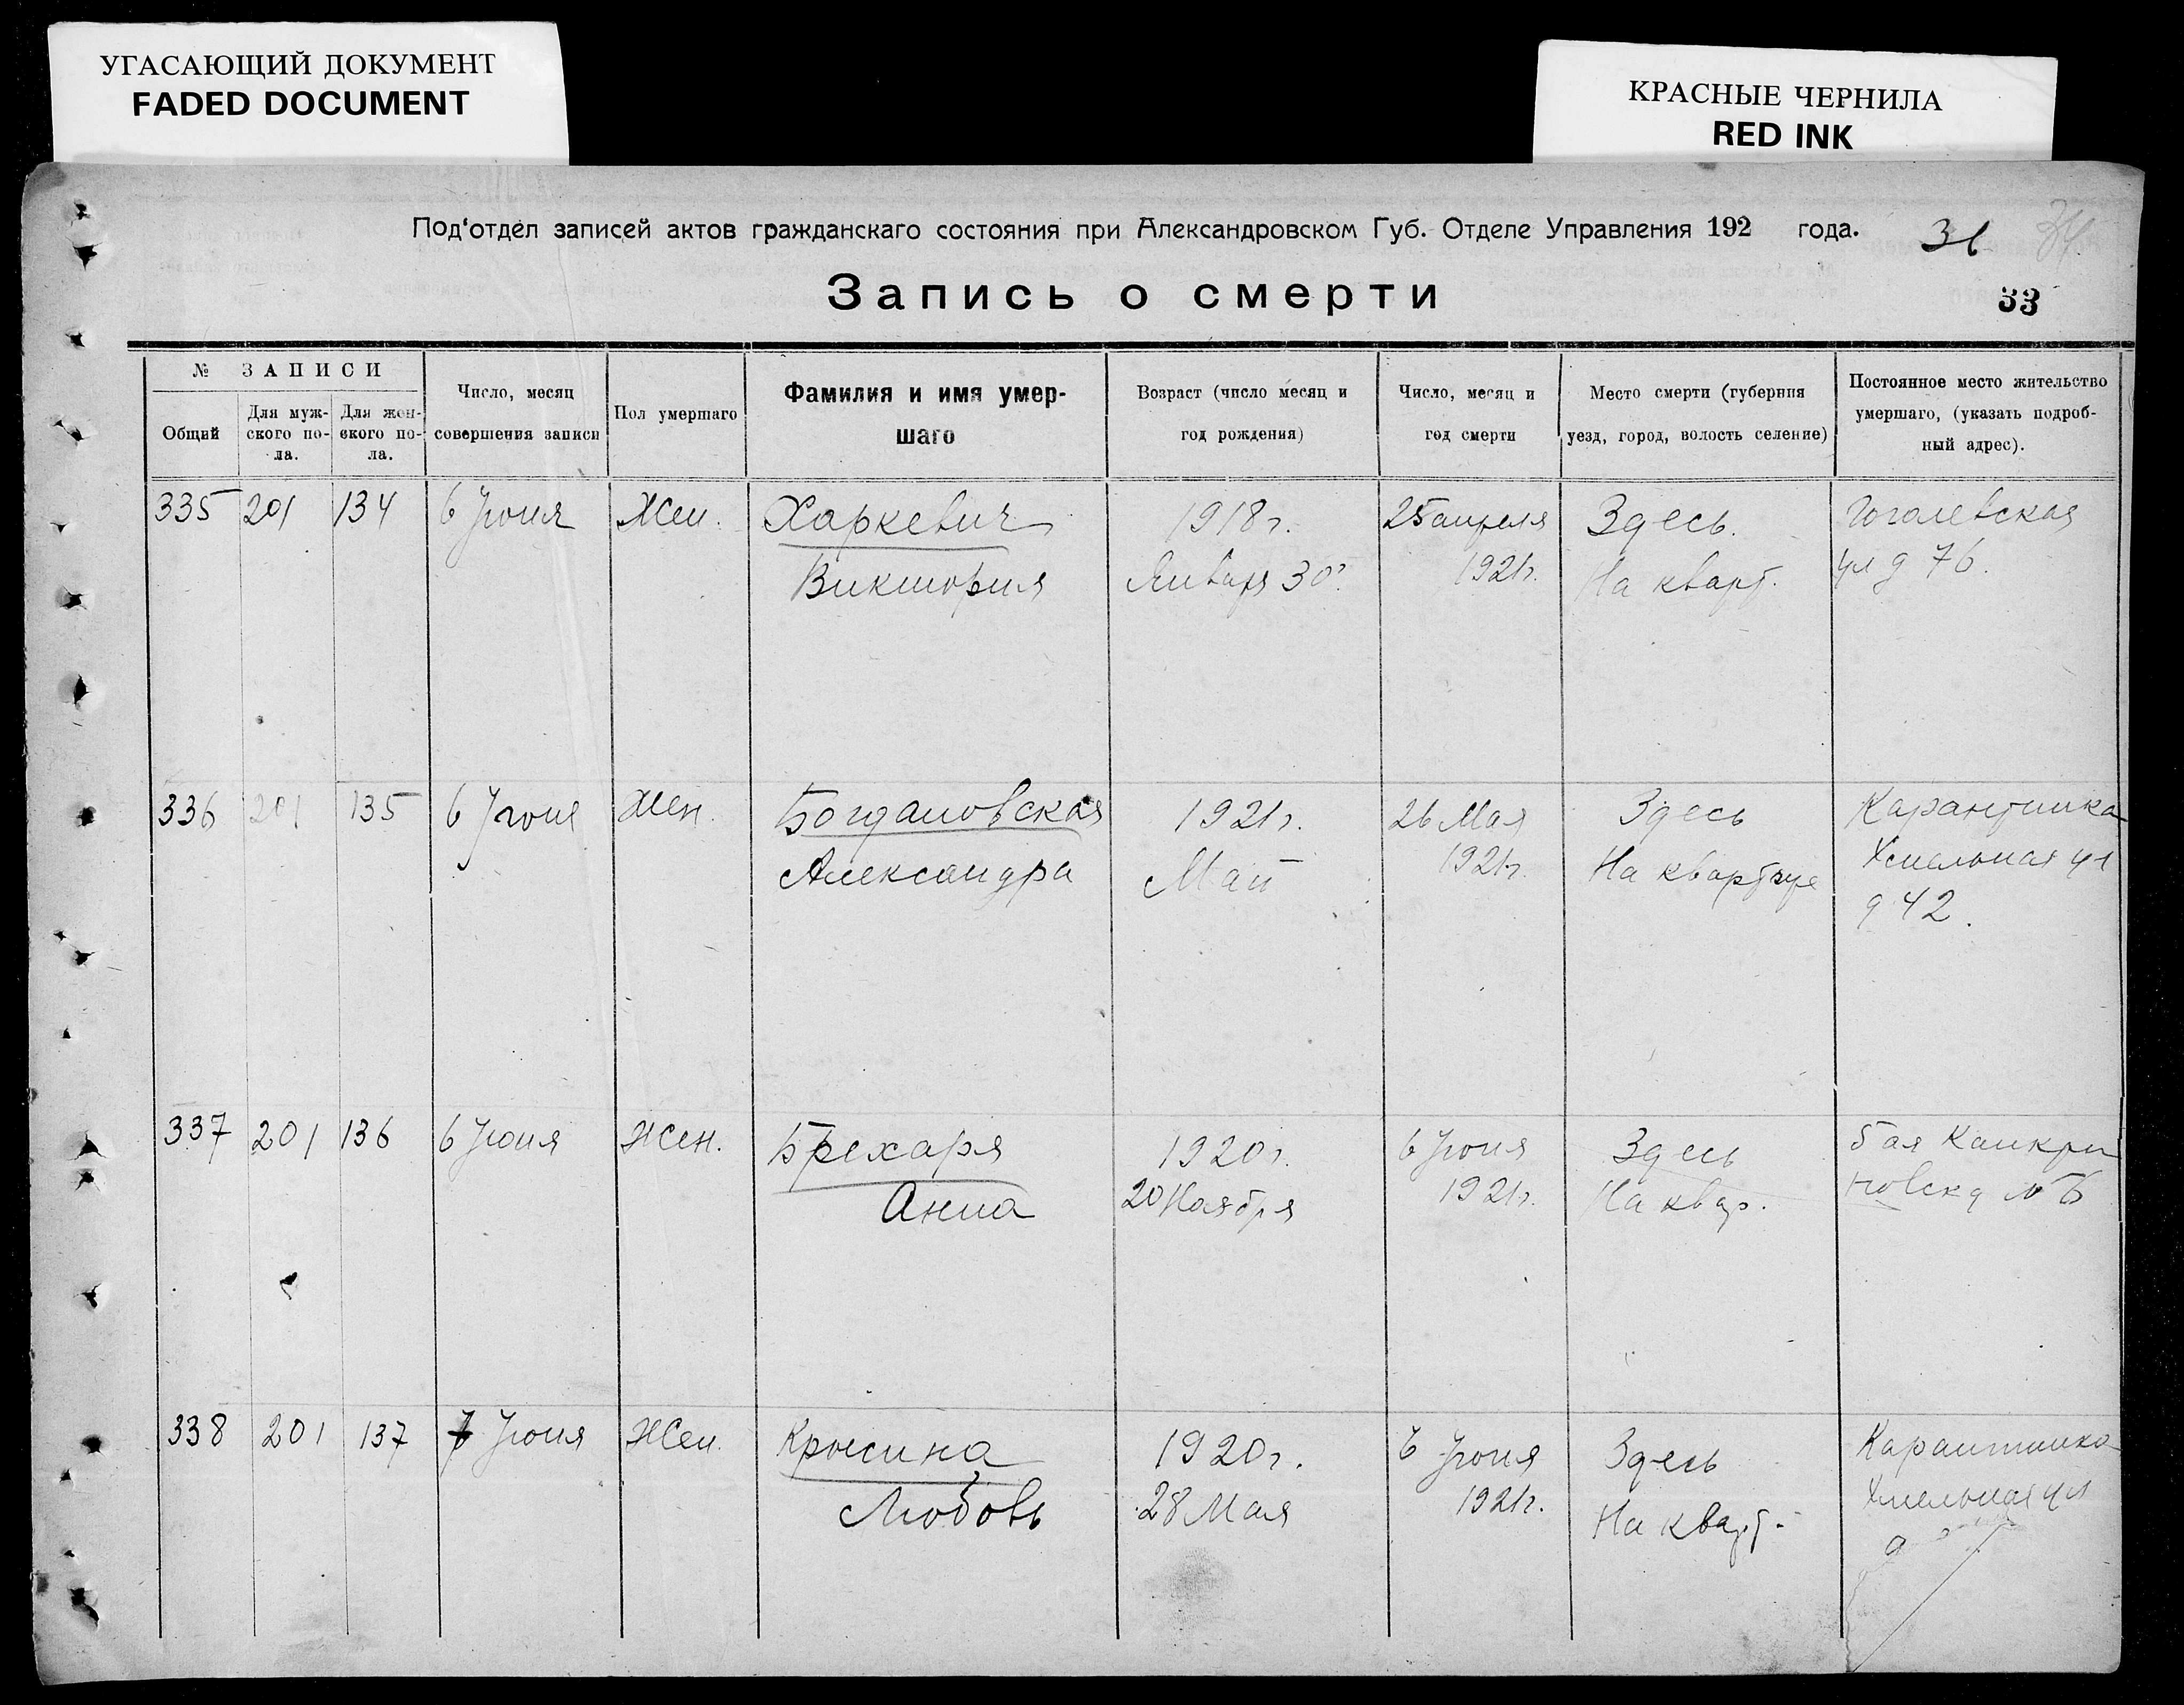 УГАСАЮЩИЙ ДОКУМЕНТ
FADED DOCUMENT
КРАСНЫЕ ЧЕРНИЛА
RED INK
Под‘отдел записей актов гражданскаго состояния при Александровском Губ. Отделе Управления 192 года.
31 34
Запись о смерти
33
№ ЗАПИСИ
Общий
Для муж-
ского по-
ла.
Для жен-
ского по-
ла.
Число, месяц
совершения записи
Пол умершаго
Фамилия и имя умер-
шаго
Возраст (число месяц и
год рождения)
Число, месяц и
год смерти
Место смерти (губерния
уезд, город, волость селение)
Постоянное место жительство
умершаго, (указать подроб-
ный адрес).
335 201 134 6 Июня Жен. Харкевич 1918 г. 25 апреля Здесь. Гоголевская
Виктория Января 30 1921 г. На кварт. ул д 76.
336 201 135 6 Июня Жен. Богдановская 1921 г. 26 Мая Здесь Карантинка
Александра Май 1921 г. На квартире Хмельная ул
д 42.
337 201 136 6 Июня Жен. Брехаря 1920 г. 6 Июня Здесь Бая Канкри
Анна 20 Ноября 1921 г. На квар. новска
338 201 137 7 Июня Жен. Крысина 1920 г. 6 Июня Здесь Карантинка
Любовь 28 Мая 1921 г. На кварт. Хмельная ул
д